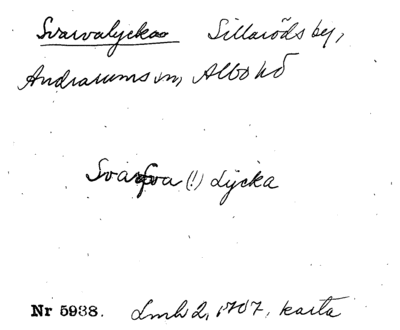 Svarvalyckan Sillaröds by,
Andrarums sn, Albo hd
Svarfva (!) Lycka
Nr 5938. Lmh 2, 1707, karta